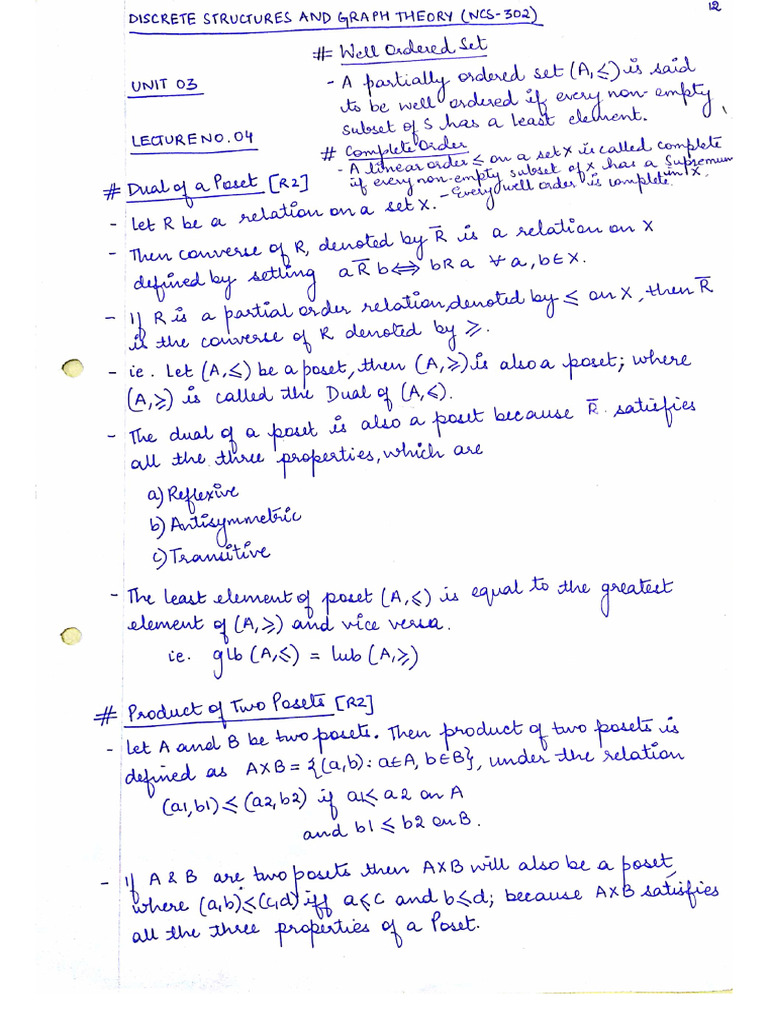 DISCRETE STRUCTURES AND GRAPH THEORY (NCS-302)
12
# Well Ordered Set
UNIT 03
- A partially ordered set (A, ≤) is said
to be well ordered if every non-empty
subset of S has a least element.
LECTURE NO. 04
# Complete Order
- A linear order ≤ on a set X is called complete
if every non-empty subset of X has a Supremum
in X.
- Every well order is complete.
# Dual of a Poset [R2]
- Let R be a relation on a set X.
- Then converse of R, denoted by R̅ is a relation on X
defined by setting a R̅ b ⟺ b R a ∀ a, b ∈ X.
- If R is a partial order relation, denoted by ≤ on X, then R̅
is the converse of R denoted by ≥.
- ie. Let (A, ≤) be a poset, then (A, ≥) is also a poset; where
(A, ≥) is called the Dual of (A, ≤).
- The dual of a poset is also a poset because R̅. satisfies
all the three properties, which are
a) Reflexive
b) Antisymmetric
c) Transitive
- The least element of poset (A, ≤) is equal to the greatest
element of (A, ≥) and vice versa.
ie. glb (A, ≤) = lub (A, ≥)
# Product of Two Posets [R2]
- Let A and B be two posets. Then product of two posets is
defined as A×B = {(a,b): a∈A, b∈B}, under the relation
(a1, b1) ≤ (a2, b2) if a1 ≤ a2 on A
and b1 ≤ b2 on B.
- If A & B are two posets then A×B will also be a poset,
where (a,b) ≤ (c,d) iff a≤c and b≤d; because A×B satisfies
all the three properties of a Poset.